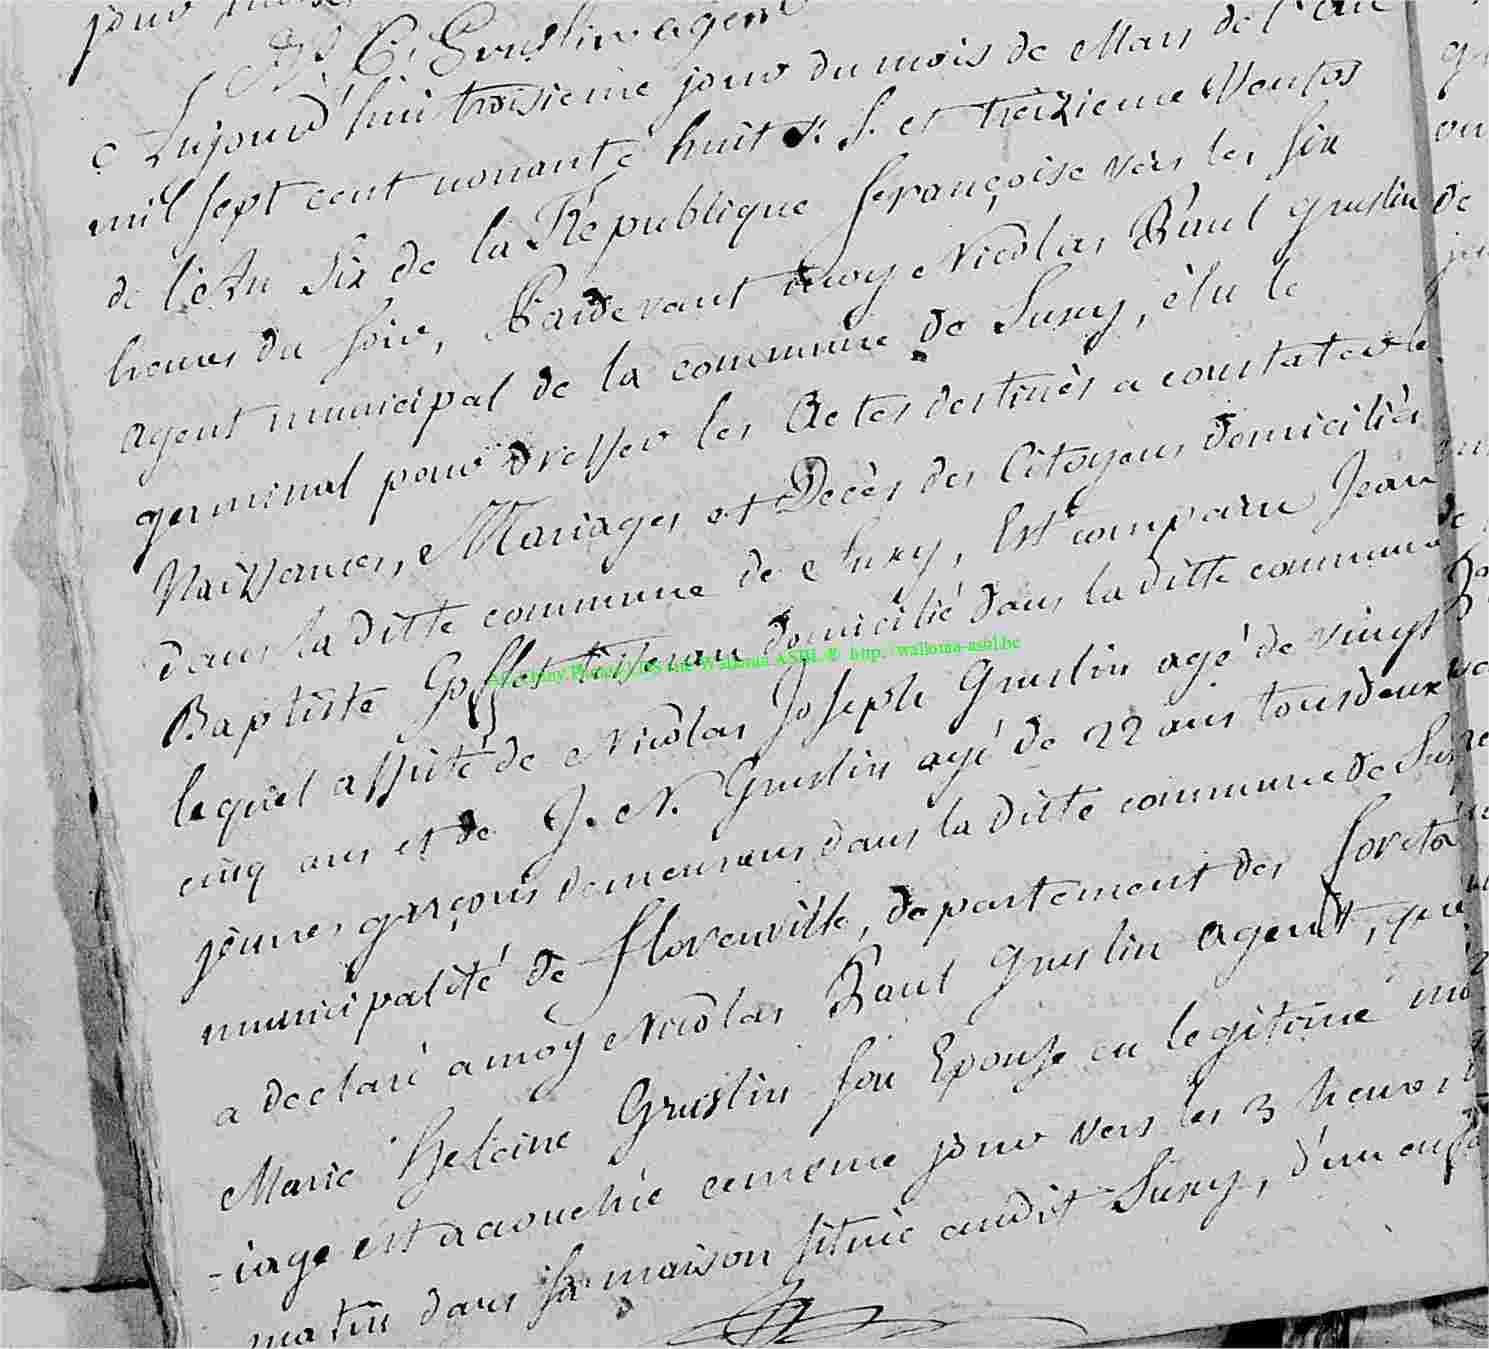 jour
Gruslin agent
Aujourd'hui troisieme jour du mois de Mars de l'an
mil sept cent nonante huit V. S. et treizieme Ventos
de l'An Six de la Republique françoise vers les six
heures du soir, Pardevant moy Nicolas Paul Gruslin
agent municipal de la commune de Suxy, élu le
germinal pour dresser les Actes destinés a constater les
Naissances, Mariages et Decès des Citoyens domiciliés
dans la ditte commune de Suxy, Est comparu Jean
Baptiste Goffet tisseran domicilié dans la ditte commune
lequel assisté de Nicolas Joseph Gruslin agé de vingt
cinq ans et de J. N. Gruslin agé de 22 ans tous deux
jeunes garçons demeurans dans la ditte commune de Suxy
municipalité de florenville, departement des forets
a declaré a moy Nicolas Paul Gruslin agent, que
Marie heleine Gruslin son Epouse en legitime mar
-iage est acouchée ce meme jour vers les 3 heures
matin dans sa maison situee audit Suxy, d'un enfa
Wallonia ASBL © http://wallonia-asbl.be